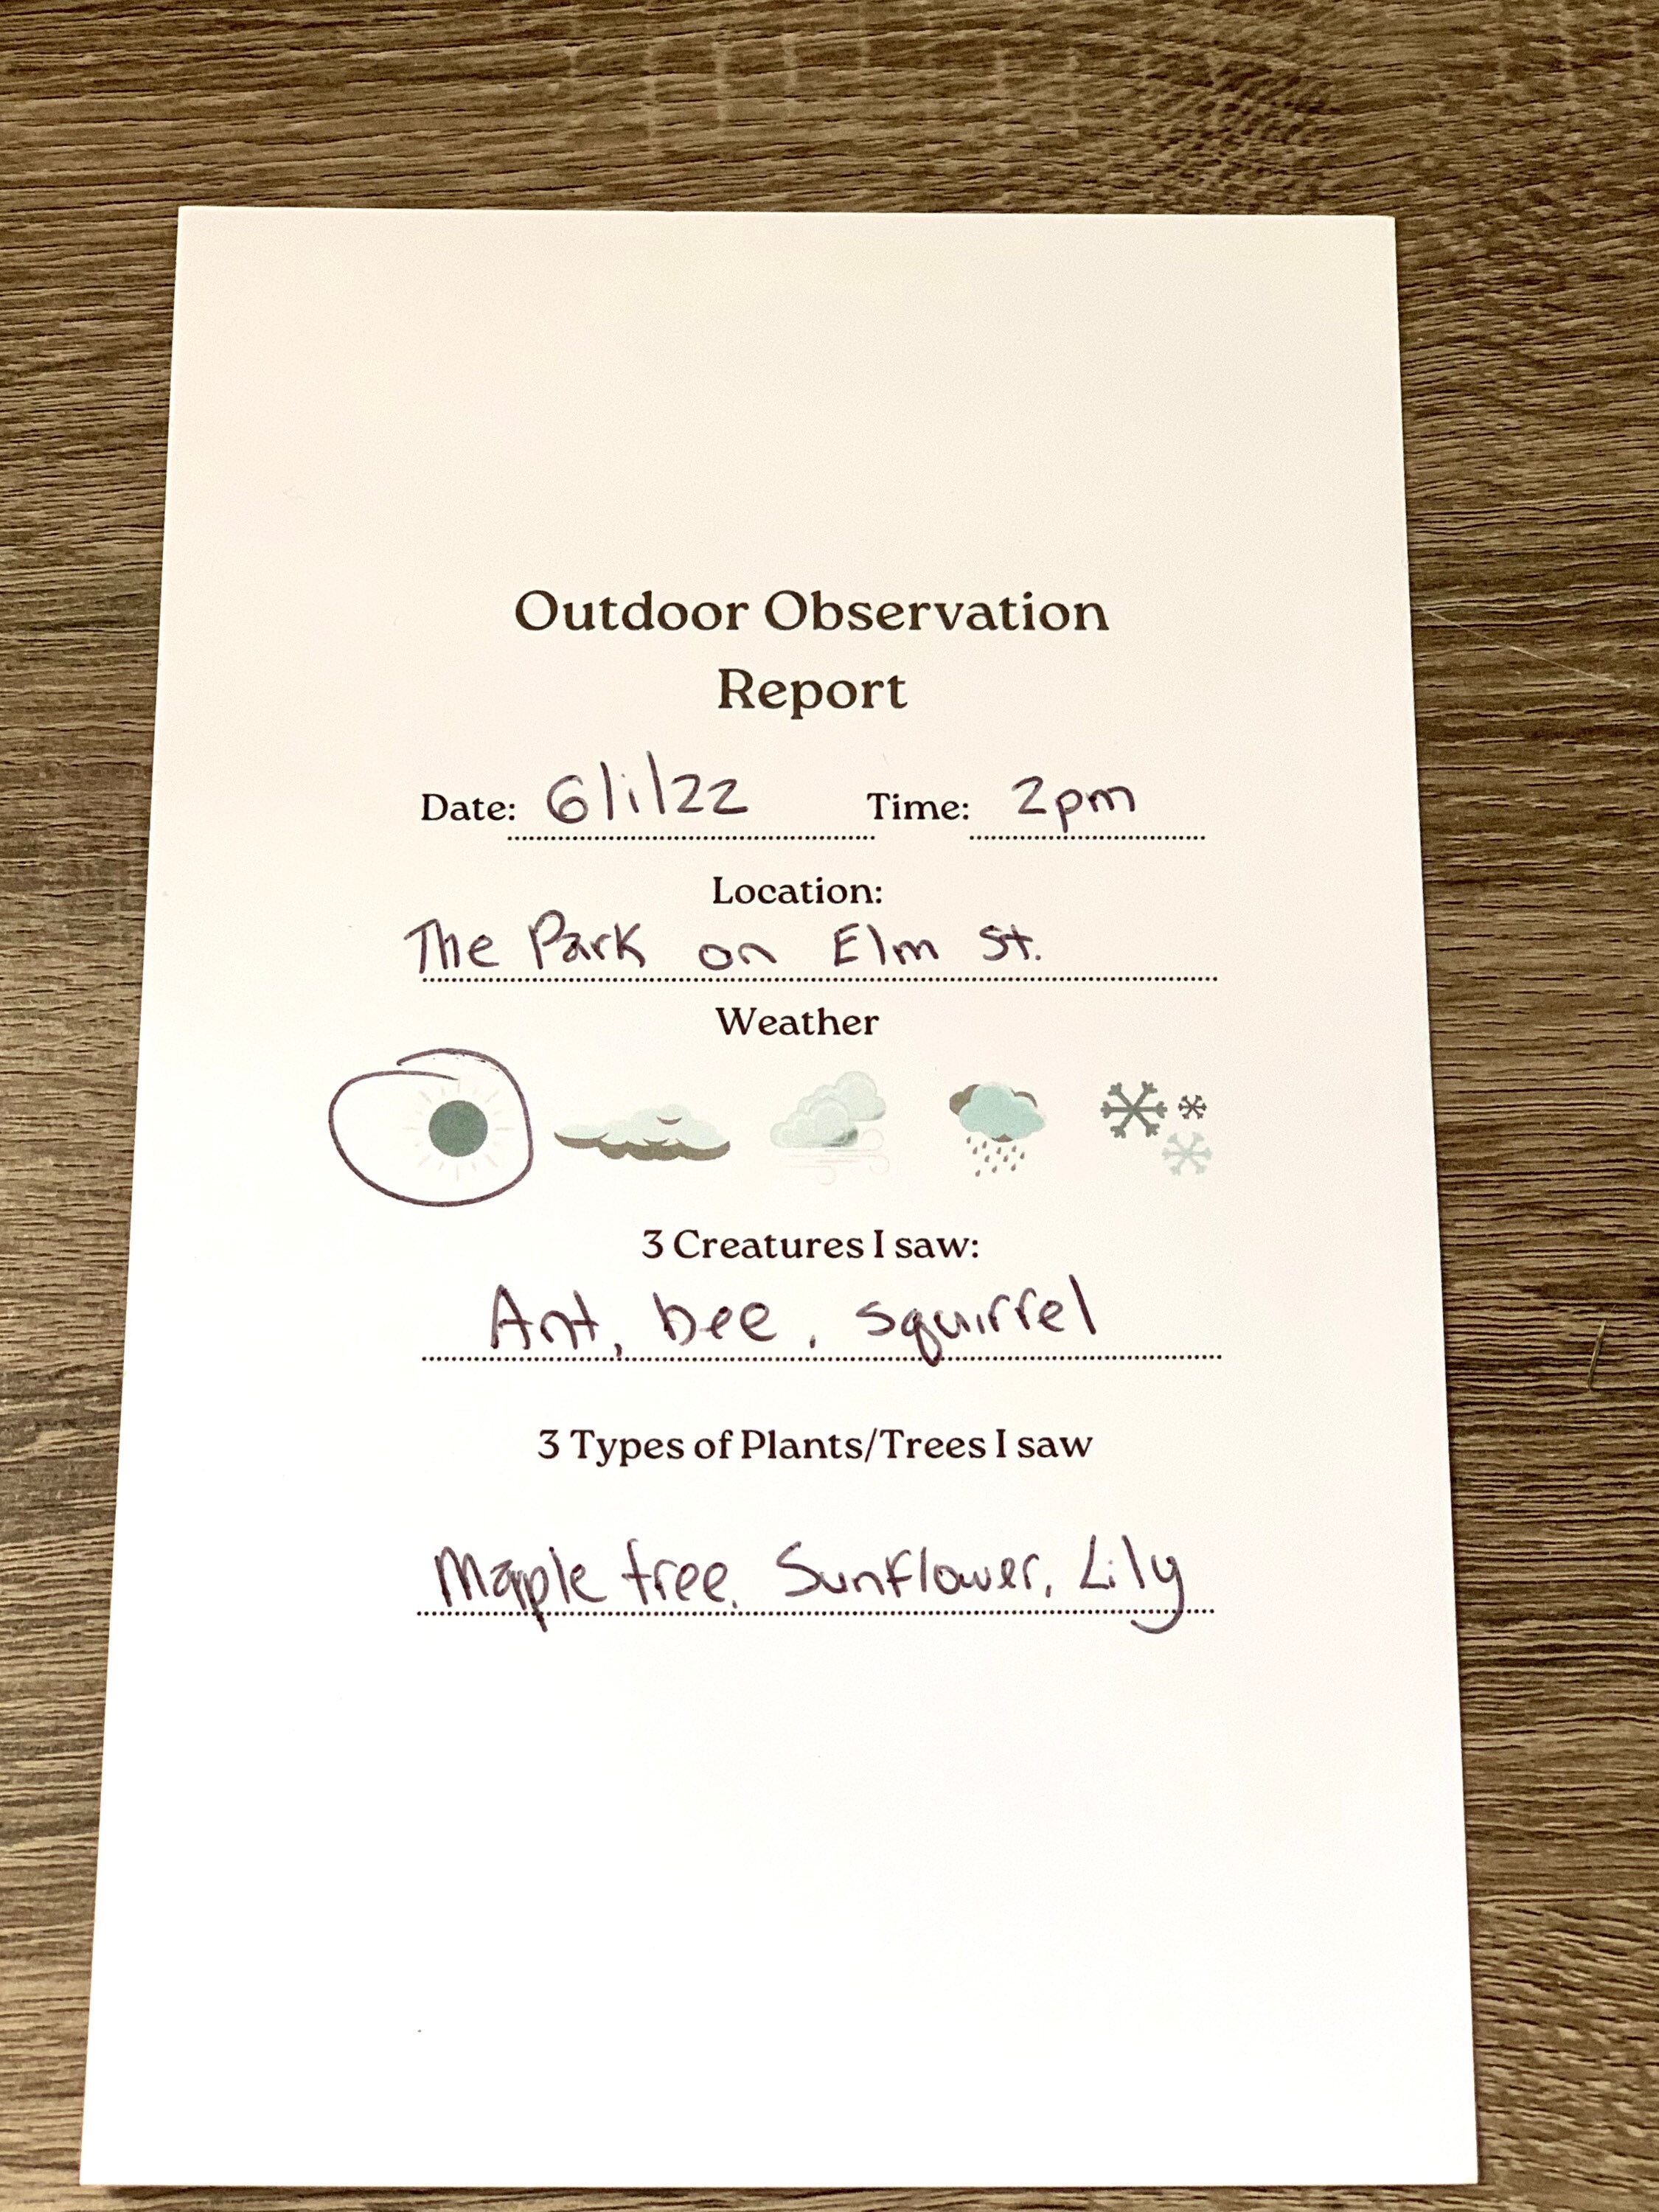 Outdoor Observation
Report
Date: 6/1/22 Time: 2pm
Location:
The Park on Elm St.
Weather
3 Creatures I saw:
Ant, bee, squirrel
3 Types of Plants/Trees I saw
Maple tree, Sunflower, Lily